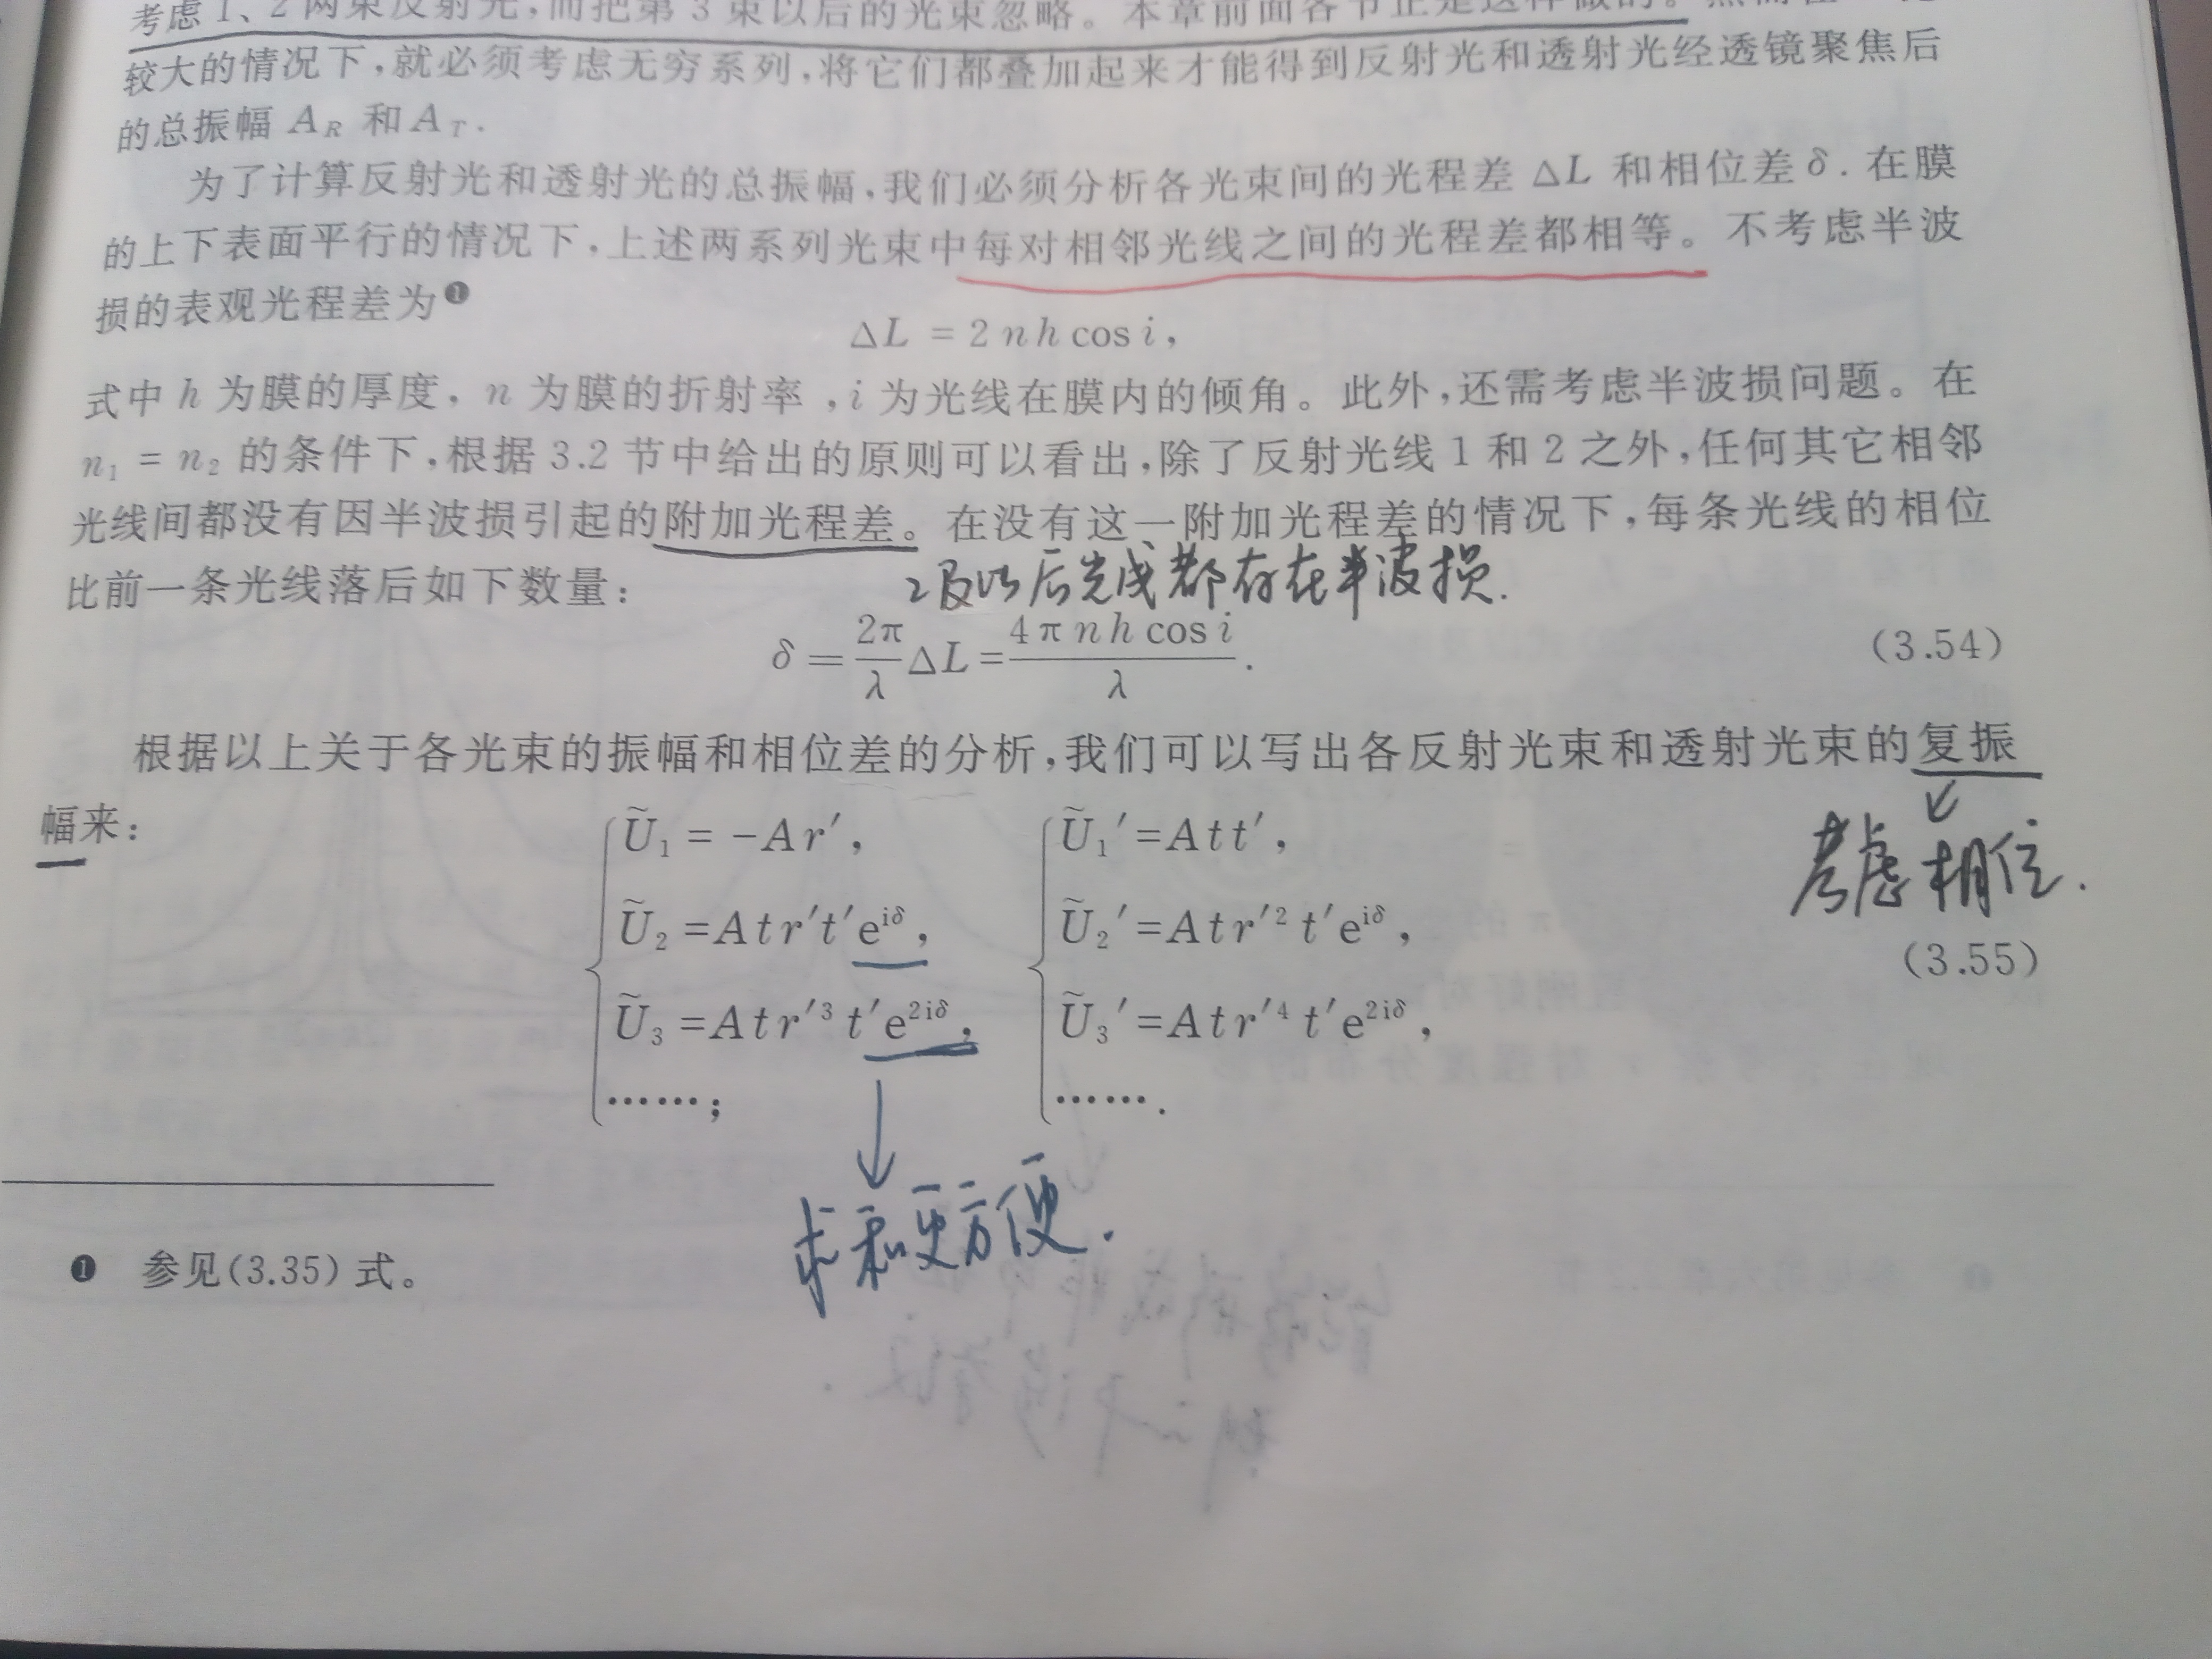 考虑1、2两束反射光,而把第3束以后的光束忽略。本章前面各节正是这样做的。然而在
较大的情况下,就必须考虑无穷系列,将它们都叠加起来才能得到反射光和透射光经透镜聚焦后
的总振幅 A_R 和 A_T.
为了计算反射光和透射光的总振幅,我们必须分析各光束间的光程差 ΔL 和相位差δ. 在膜
的上下表面平行的情况下,上述两系列光束中每对相邻光线之间的光程差都相等。不考虑半波
损的表观光程差为❶
ΔL = 2 n h cos i,
式中 h 为膜的厚度, n 为膜的折射率 ,i 为光线在膜内的倾角。此外,还需考虑半波损问题。在
n₁ = n₂ 的条件下,根据3.2节中给出的原则可以看出,除了反射光线1和2之外,任何其它相邻
光线间都没有因半波损引起的附加光程差。在没有这一附加光程差的情况下,每条光线的相位
比前一条光线落后如下数量:
2及以后光线都存在半波损.
δ = 2π/λ ΔL = 4π n h cos i/λ . (3.54)
根据以上关于各光束的振幅和相位差的分析,我们可以写出各反射光束和透射光束的复振
幅来:
考虑相位.
Ũ₁ = −Ar′, Ũ₁′=Att′,
Ũ₂ =Atr′t′e^{iδ}, Ũ₂′=Atr′² t′e^{iδ},
(3.55)
Ũ₃ =Atr′³ t′e^{2iδ}, Ũ₃′=Atr′⁴ t′e^{2iδ},
……; …….
求和更方便.
❶ 参见(3.35)式。